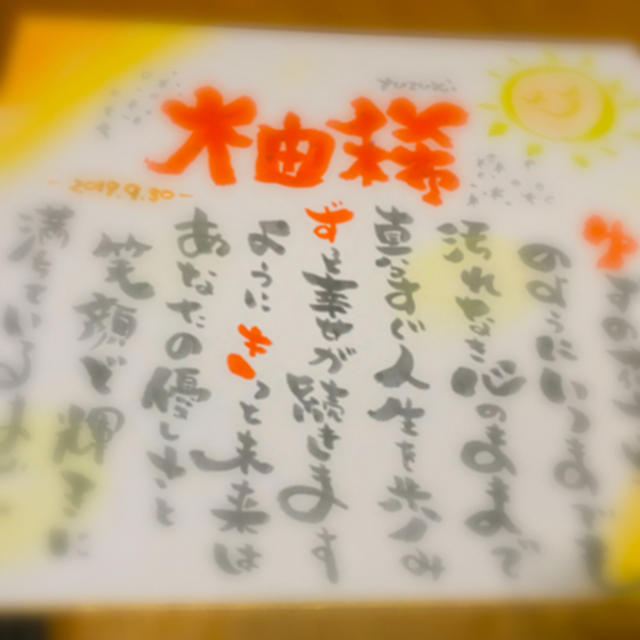 柚稀
yuzuki
2019.9.30
ゆずの花
のようにいつまでも
汚れなき心のままで
真っすぐ人生を歩み
ずっと幸せが続きます
ように きっと未来は
あなたの優しさと
笑顔で輝きに
満ちている